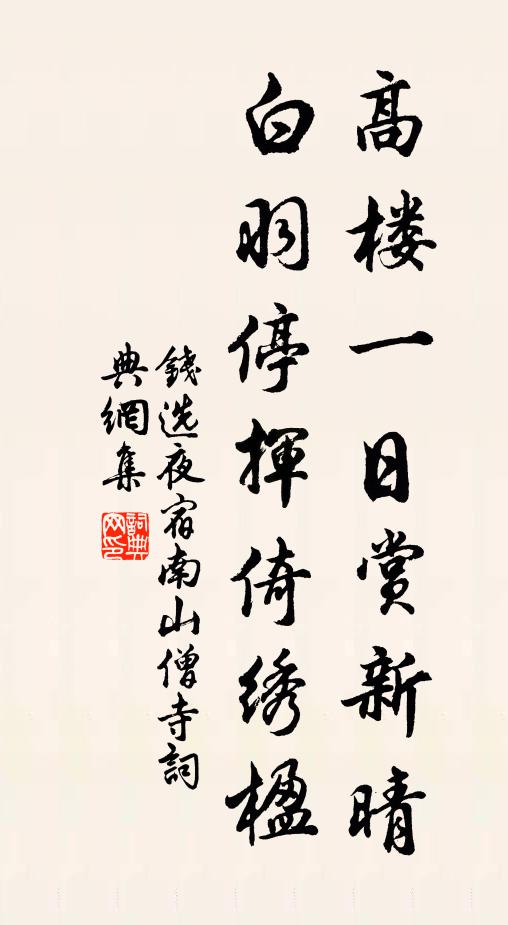 高楼一日赏新晴
白羽停揮倚绣楹
錢选夜宿南山僧寺詞
典網集
詞典网印